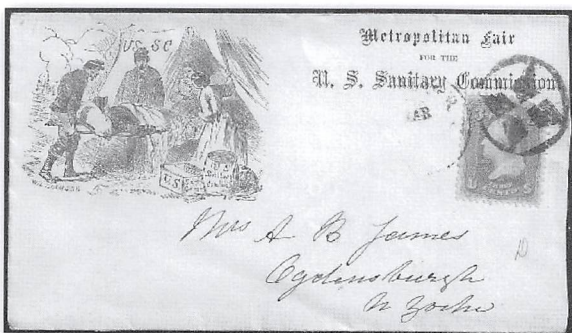 U.S. SC
Metropolitan Fair
FOR THE
U. S. Sanitary Commission
AR
U.S.
U S
CENTS
Mrs A B James
Ogdensburgh
N York